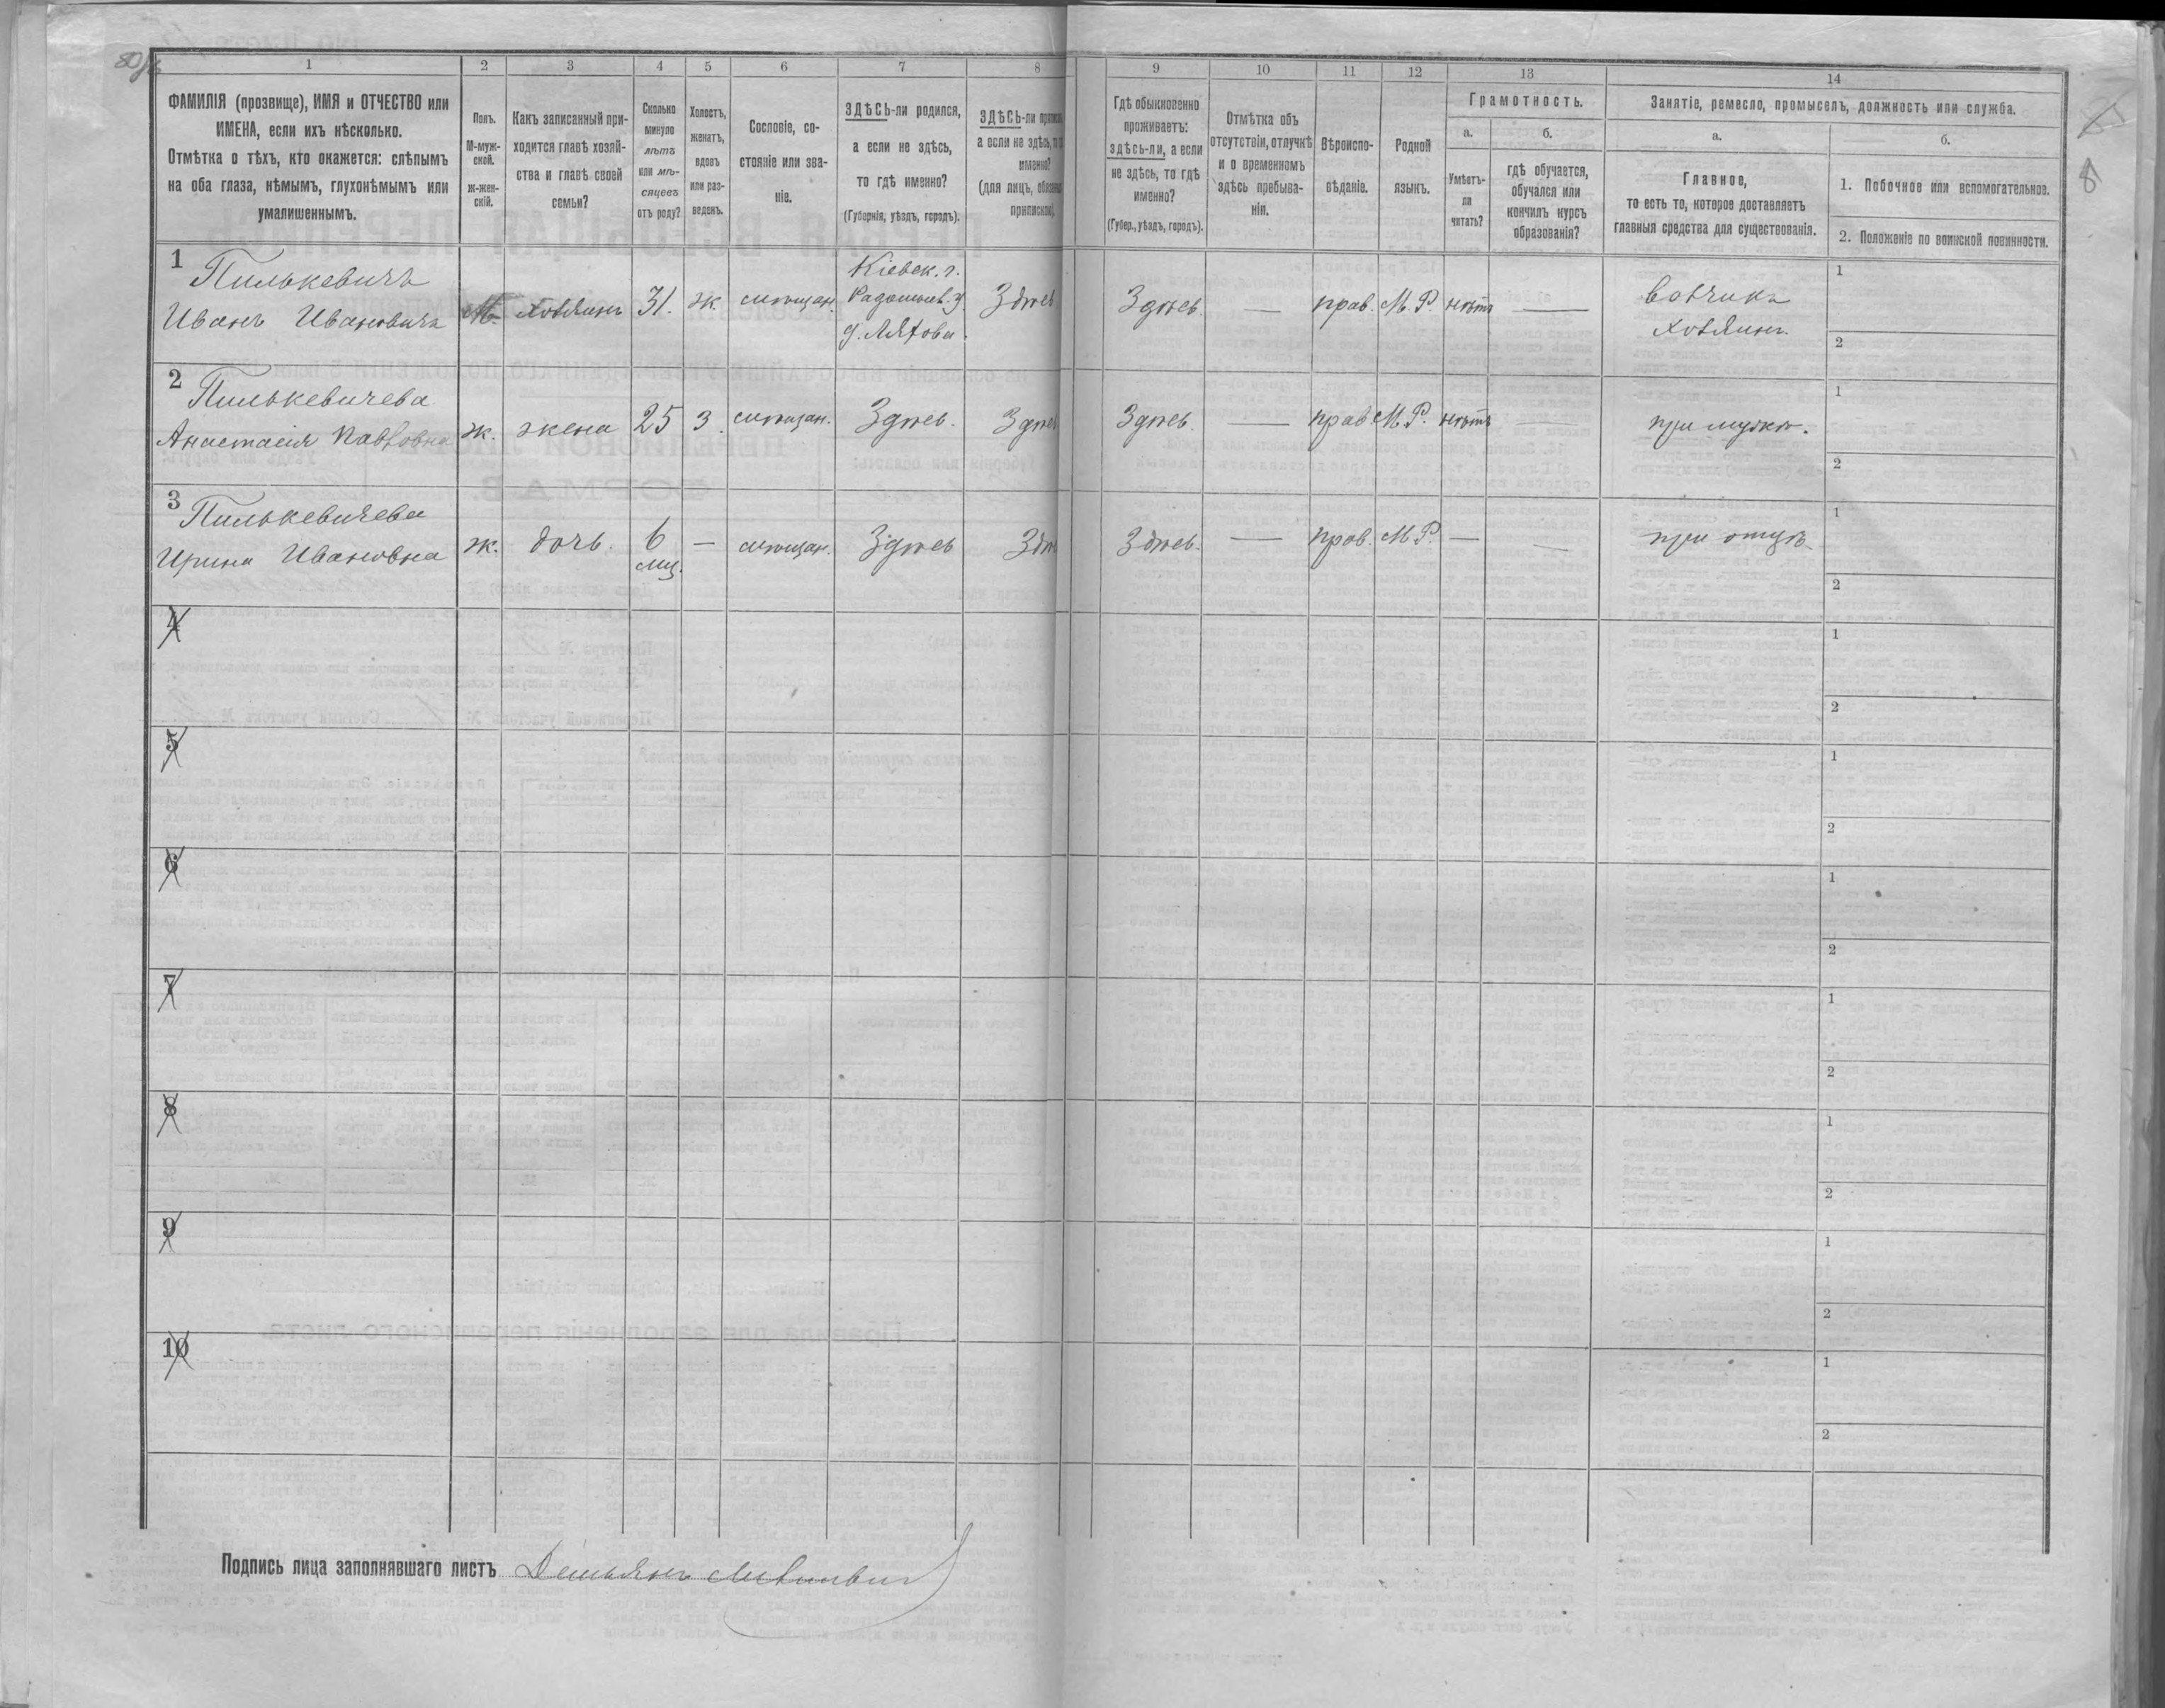 1
2
3
4
5
6
7
8
9
10
11
12
13
14
ФАМИЛІЯ (прозвище), ИМЯ и ОТЧЕСТВО или
ИМЕНА, если ихъ нѣсколько.
Отмѣтка о тѣхъ, кто окажется: слѣпымъ
на оба глаза, нѣмымъ, глухонѣмымъ или
умалишеннымъ.
Полъ.
М-муж-
ской.
ж-жен-
скій.
Какъ записанный при-
ходится главѣ хозяй-
ства и главѣ своей
семьи?
Сколько
минуло
лѣтъ
или мѣ-
сяцевъ
отъ роду?
Холостъ,
женатъ,
вдовъ
или раз-
веденъ.
Сословіе, со-
стояніе или зва-
ніе.
ЗДѢСЬ-ли родился,
а если не здѣсь,
то гдѣ именно?
(Губернія, уѣздъ, городъ).
ЗДѢСЬ-ли
а если не здѣсь,
именно?
(для лицъ,
Гдѣ обыкновенно
проживаетъ:
здѣсь-ли, а если
не здѣсь, то гдѣ
именно?
(Губер., уѣздъ, городъ).
Отмѣтка объ
отсутствіи, отлучкѣ
и о временномъ
здѣсь пребыва-
ніи.
Вѣроиспо-
вѣданіе.
Родной
языкъ.
Грамотность.
а.
б.
Умѣетъ-
ли
читать?
гдѣ обучается,
обучался или
кончилъ курсъ
образованія?
Занятіе, ремесло, промыселъ, должность или служба.
а.
б.
Главное,
то есть то, которое доставляетъ
главныя средства для существованія.
1. Побочное или вспомогательное.
2. Положеніе по воинской повинности.
1
Пилькевичъ
Иванъ Ивановичъ
М. хозяинъ 31. ж. мѣщан.
Кіевск. г.
Радомысл. у.
Здѣсь
Здѣсь. — прав. М. Р. нѣтъ —
хозяинъ.
1
2
2
Пилькевичева
Анастасія Павловна
ж. жена 25 з. мѣщан. Здѣсь. Здѣсь
Здѣсь. — прав. М. Р. нѣтъ —
при мужѣ.
1
2
3
Пилькевичева
Ирина Ивановна
ж. дочь. 6
мц.
— мѣщан. Здѣсь
Здѣсь. — прав. М. Р. — —
при отцѣ.
1
2
4
1
2
5
1
2
6
1
2
7
1
2
8
1
2
9
1
2
10
1
2
Подпись лица заполнявшаго листъ Демьянъ